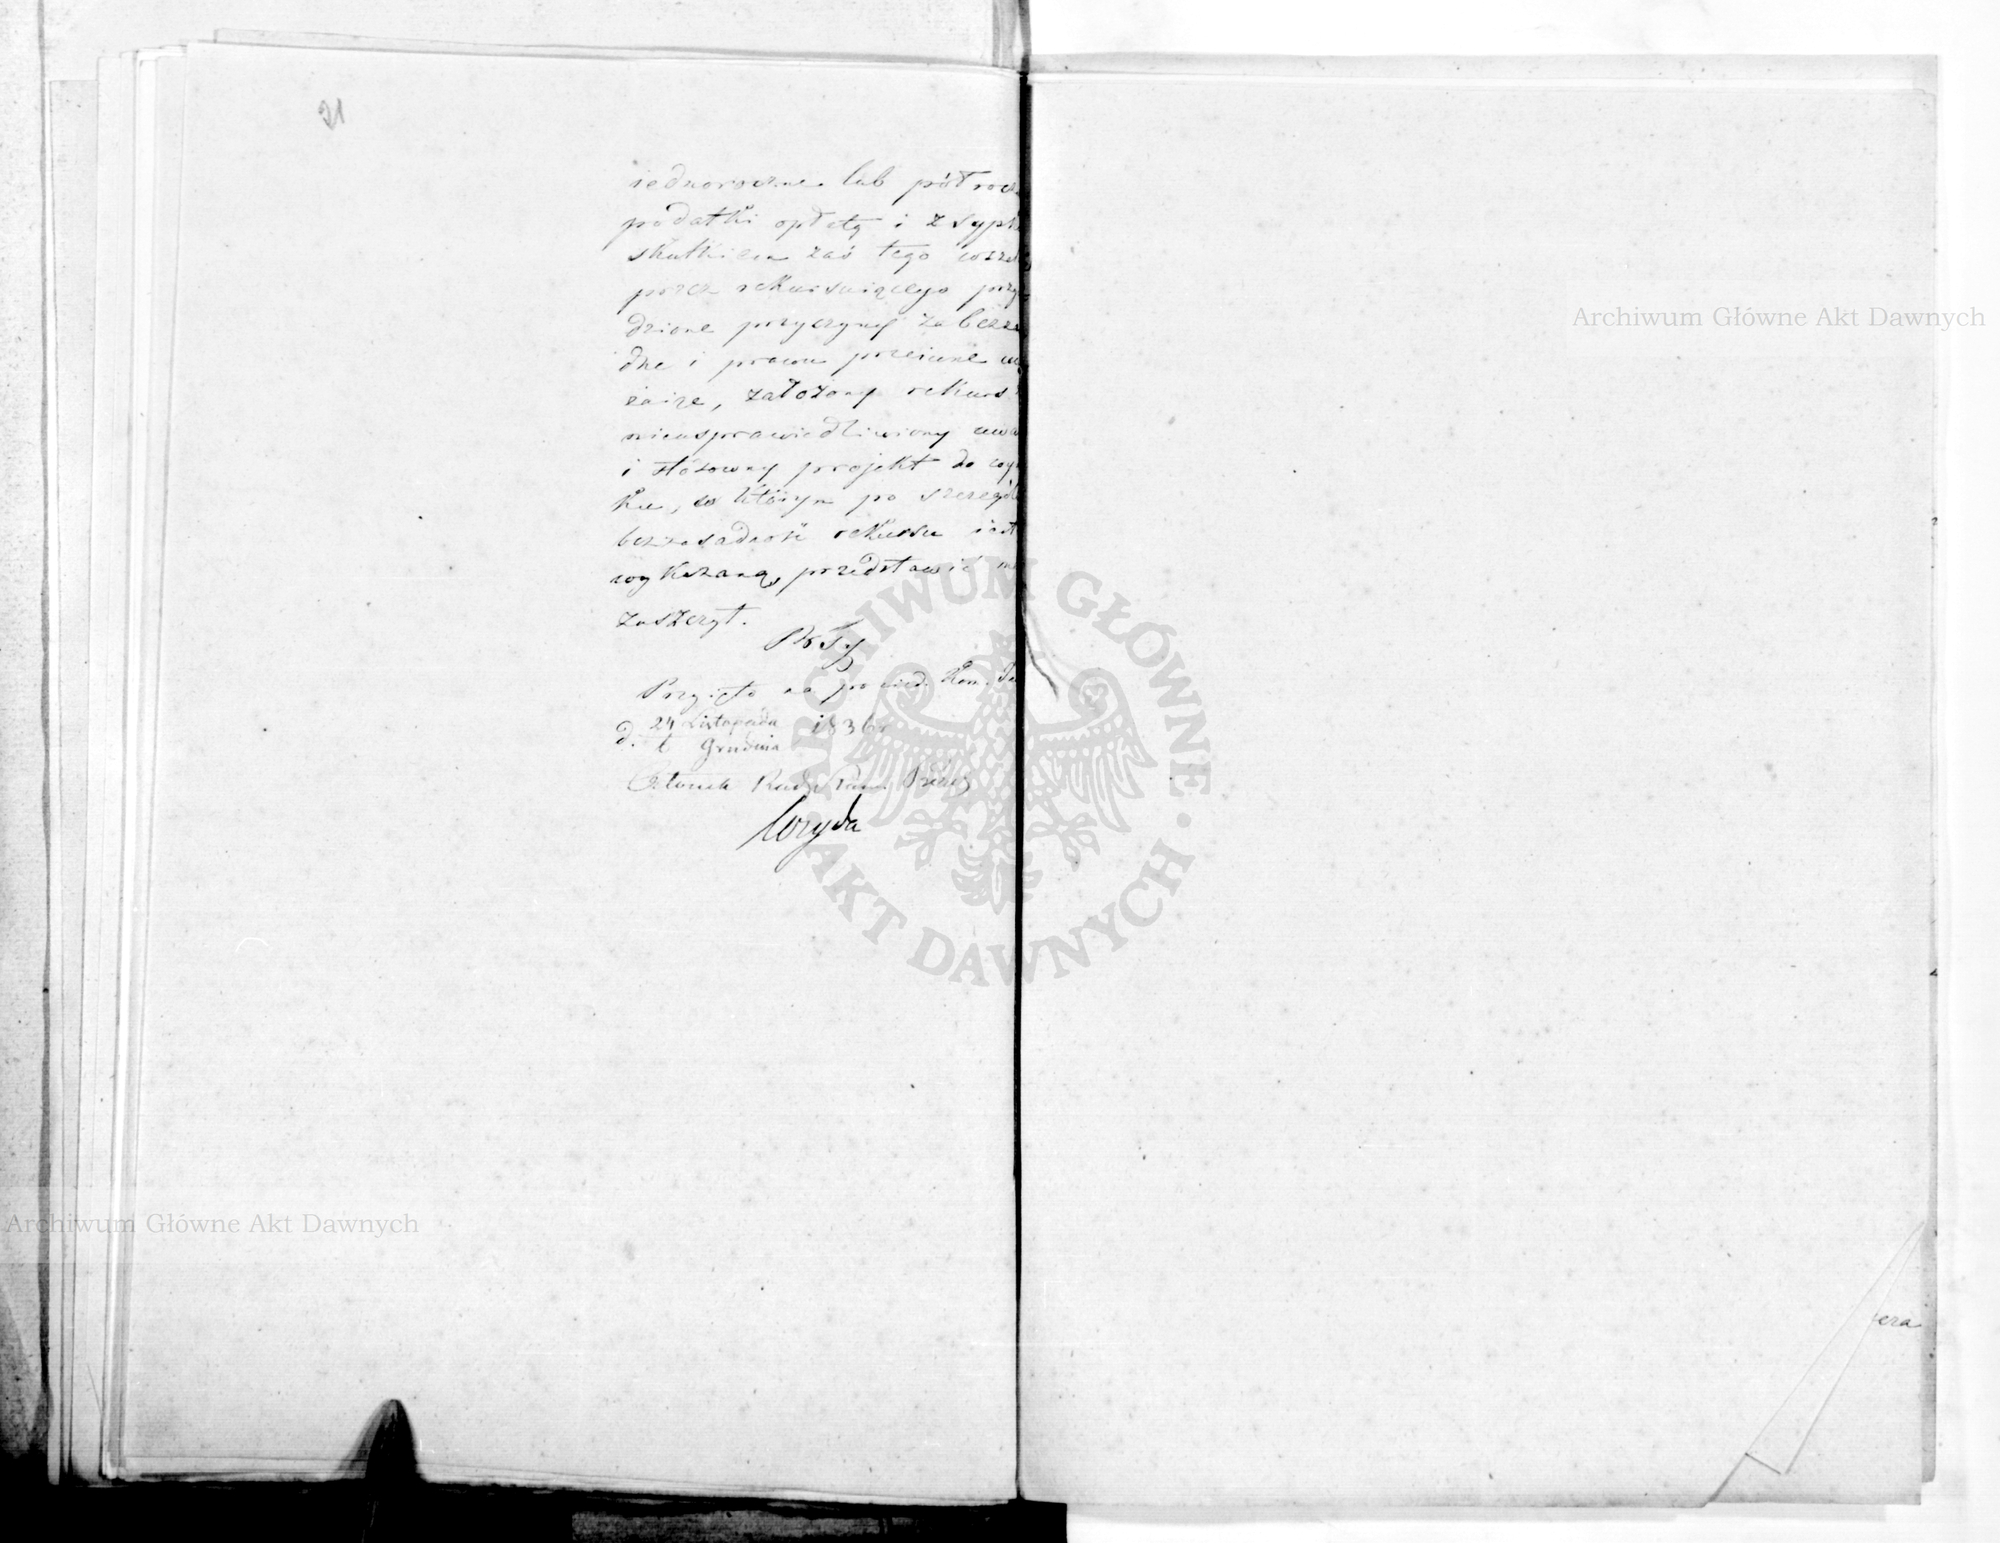 21
iednoroczne lub półrocz
podatki opłatę i zsypk
skutkiem zaś tego wszel
przez rekursuiącego przy
dzione przyczyny za bezza
dne i prawu przeciwne
żaiąc, założony rekurs
nieusprawiedliwiony uwa
i stosowny projekt do wy
ku, w którym po szczegól
bezzasadność rekursu iest
wykazaną, przedstawić ma
zaszczyt.
Przyięto na posied. Kom.
d. 24 Listopada 1836 r
6 Grudnia
Członek Rady Prezes
Woyda
era
ARCHIWUM GŁÓWNE AKT DAWNYCH
Archiwum Główne Akt Dawnych
Archiwum Główne Akt Dawnych